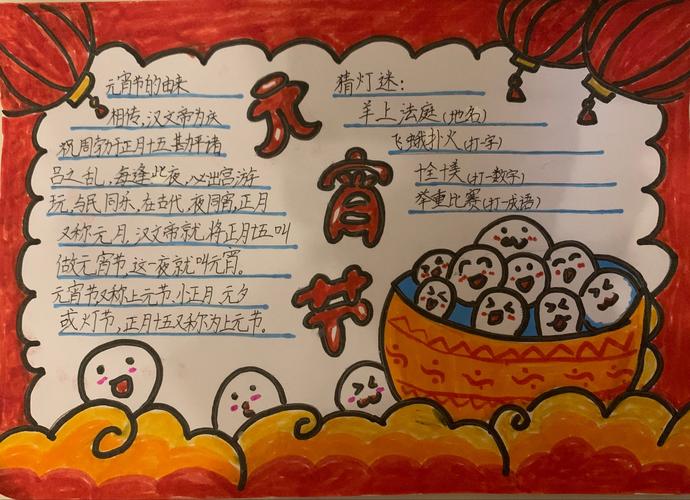 元宵节的由来
相传,汉文帝为庆
祝周勃于正月十五勘平诸
吕之乱,每逢此夜,必出宫游
玩,与民同乐,在古代,夜同宵,正月
又称元月,汉文帝就将正月十五叫
做元宵节,这一夜就叫元宵。
元宵节又称上元节,小正月,元夕
或灯节,正月十五又称为上元节。
元
宵
节
猜灯迷:
羊上法庭(地名)
飞蛾扑火(打一字)
十全十美(打一数字)
举重比赛(打一成语)